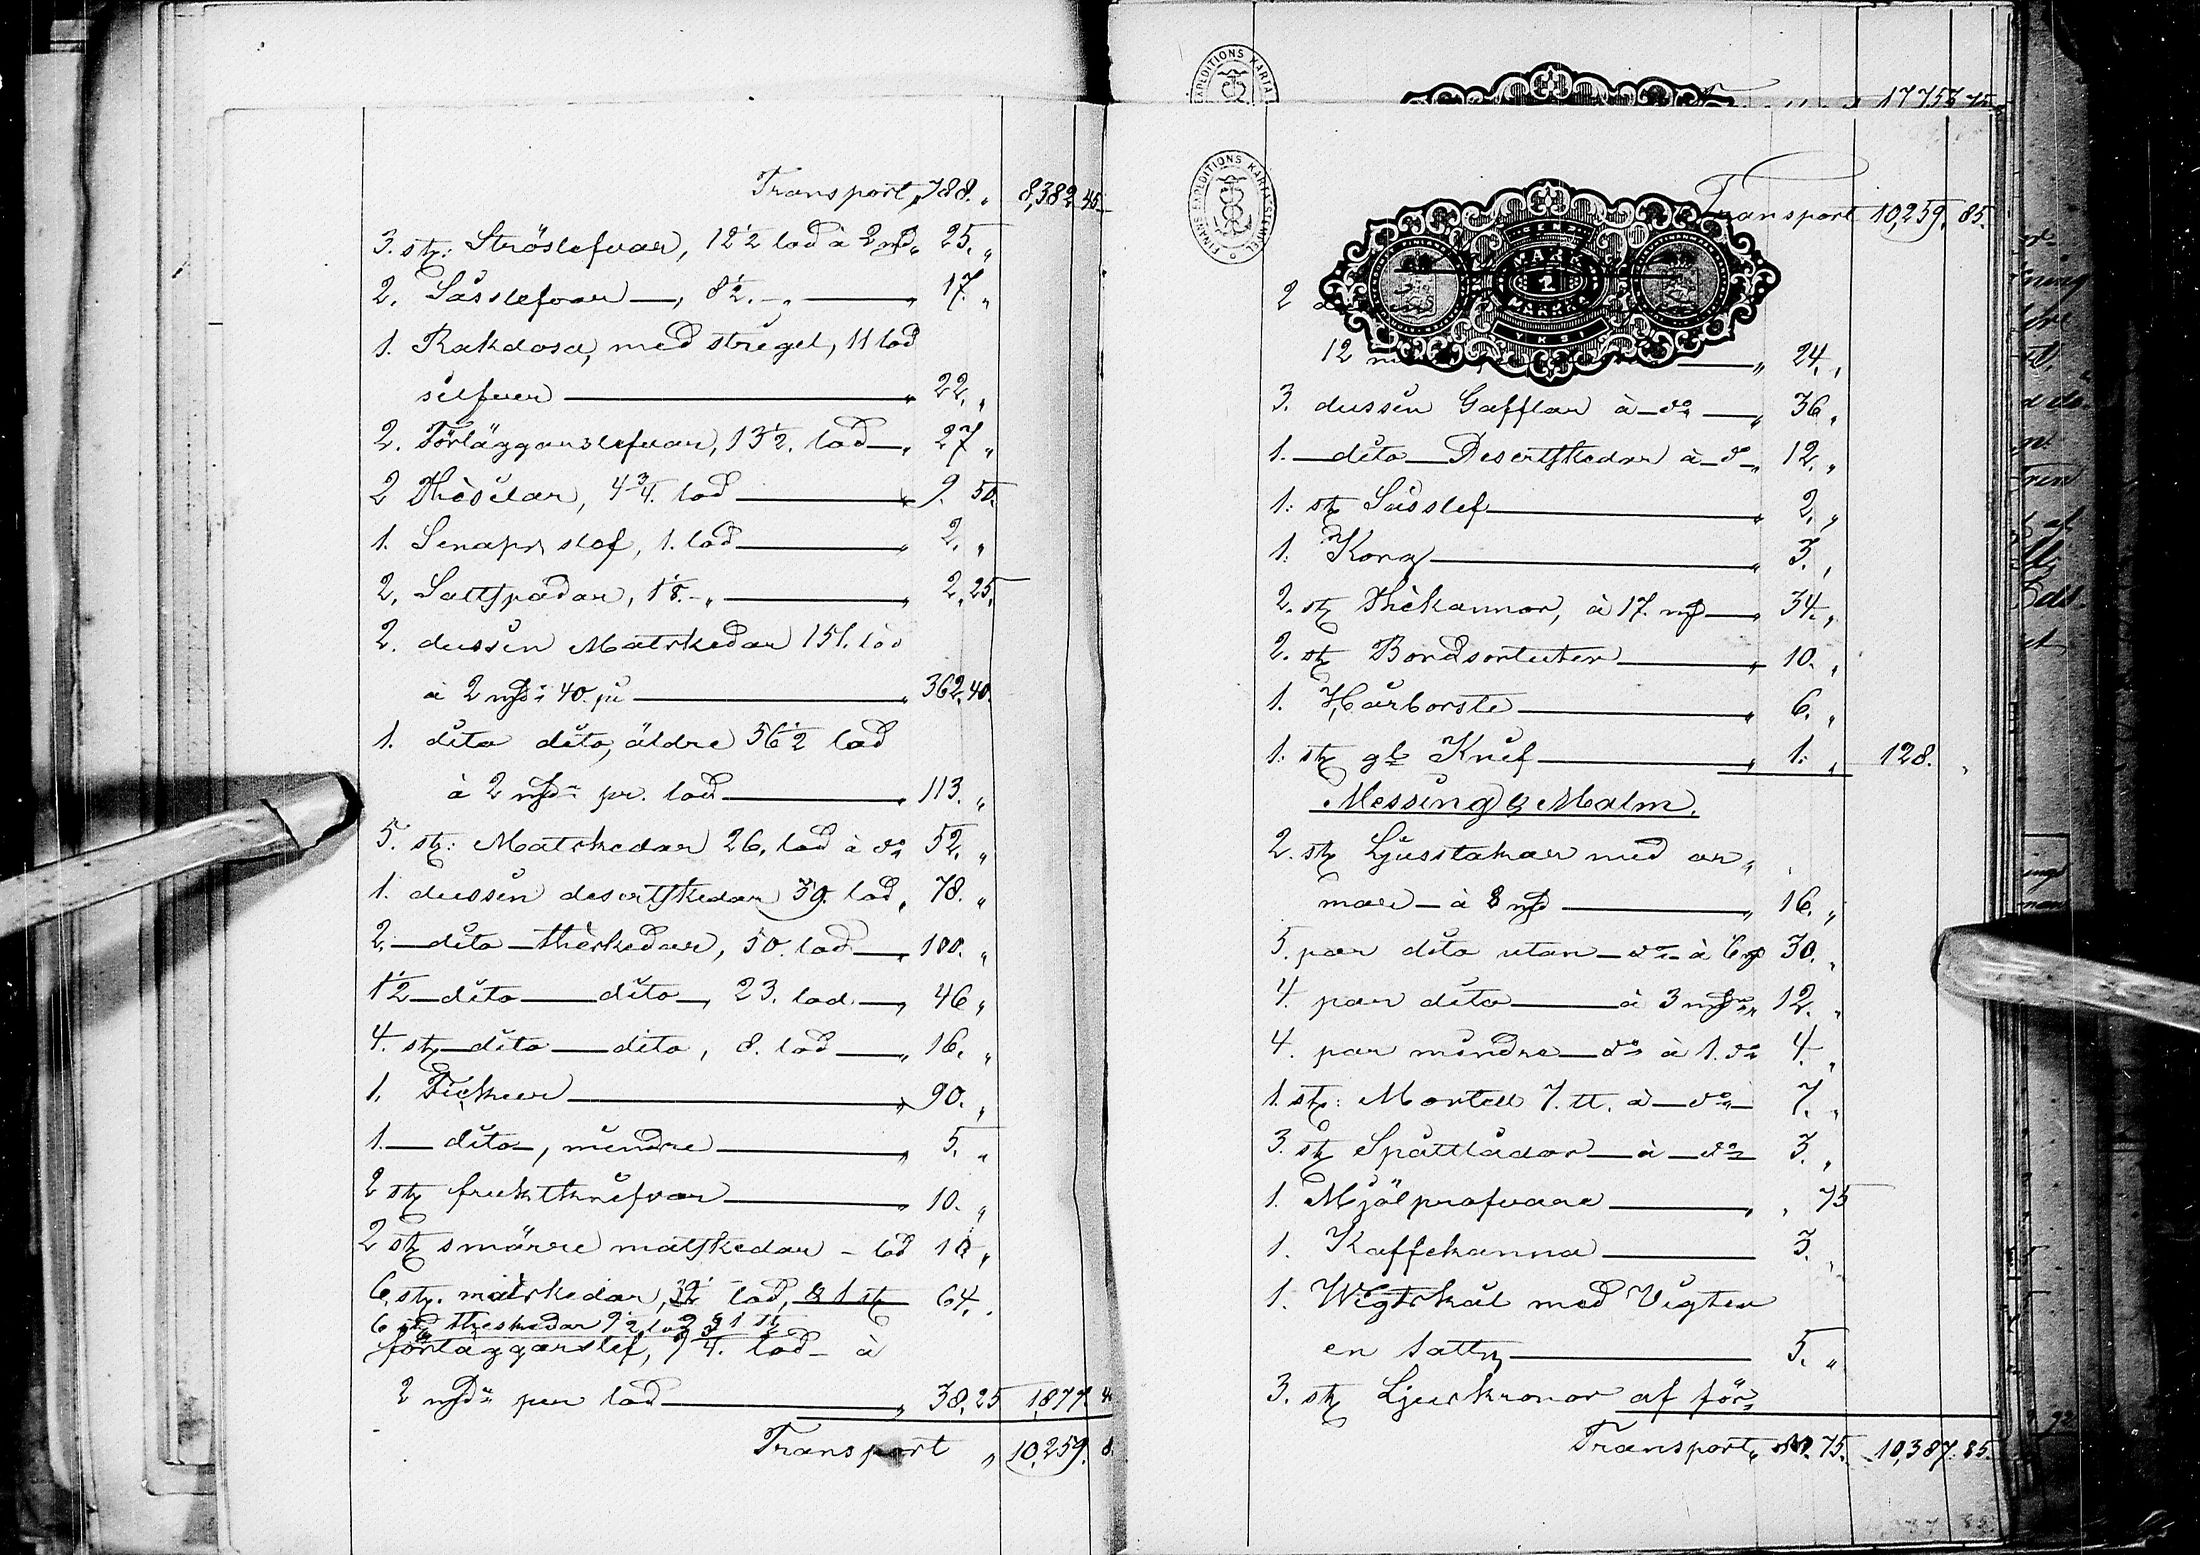 Transport „ 788. „ 8,382 45
3. st: Ströslefvar, 12½ lod à 2 mk „ 25. „
2. Såsslefvar —, 8½. — „ — „ 17. „
1. Rakdosa, med strigel, 11 lod
silfver — „ 22. „
2. Förläggarslefvar, 13½. lod — „ 27 „
2 Thésilar, 4¾. lod — „ 9. 50.
1. Senapsslef, 1. lod — „ 2. „
2. Saltspadar, 1⅛. — „ — „ 2. 25.
2. dussin Matskedar 151. lod
à 2 mk 40. pi — „ 362. 40.
1. dito dito, äldre 56½ lod
à 2 mk pr. lod — „ 113. „
5. st: Matskedar 26. lod à do 52. „
1. dussin desertskedar 39. lod „ 78. „
2. — dito — théskedar, 50. lod — „ 100. „
1½ — dito — dito —, 23. lod. — „ 46 „
4. st — dito — dito, 8. lod — „ 16. „
1. Fickur — „ 90. „
1. — dito —, mindre — „ 5. „
2 st fruktknifvar — „ 10. „
2 st smärre matskedar – lod 10 „
6. st. matskedar, 32 lod, & 1 st 64. „
6 st theskedar 9½ lod & 1 st
förläggarslef, 9¾. lod – à
2 mk per lod — „ 38, 25 1,877. 4
Transport „ 10,259. 8
17753 75
FINANS EXPEDITIONS KARTASTEMPEL
Transport 10,259. 85.
MARK 2 MARKKA
2
12 „ 24. „
3. dussin Gafflar à — do — „ 36 „
1. — dito — Desertskedar à — do „ 12. „
1: st Såsslef — „ 2. „
1: Korg — „ 3. „
2. st Thékannor, à 17. mk — „ 34. „
2. st Bordsorluter — „ 10. „
1. Hårborste — „ 6. „
1: st gl Knif — „ 1: „ 128. „
Messing & Malm.
2. st Ljusstakar med ar „
mar — à 8 mk — „ 16. „
5. par dito utan — do — à 6 mk 30. „
4. par dito — à 3 mk „ 12. „
4. par mindre — do à 1. do 4. „
1. st: Mortell 7. ℔. à — do — 7. „
3. st Spåttlådor — à — do 3. „
1. Mjölprofvare — „ „ 75
1. Kaffekanna — 3. „
1. Wigtskål med Vigter
en satts — 5. „
3. st Ljuskronor af för
Transport „ 75. 10,387. 85.